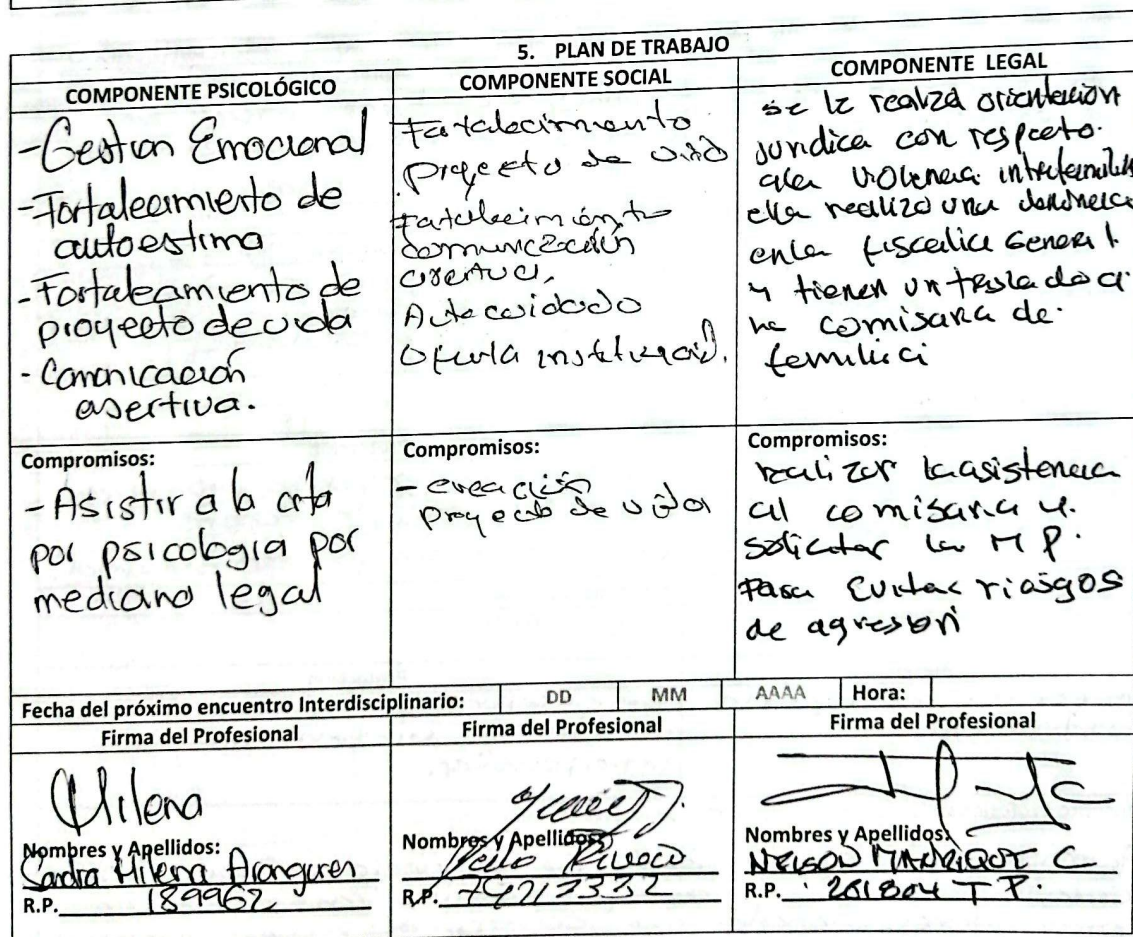 5. PLAN DE TRABAJO
COMPONENTE PSICOLÓGICO
- Gestion Emocional
- Fortalecimiento de
autoestima
- Fortalecimiento de
proyecto de vida
- Comunicación
asertiva.
COMPONENTE SOCIAL
Fortalecimiento
proyecto de vida
Fortalecimiento
comunicación
asertiva,
Autocuidado
Oferta institucional.
COMPONENTE LEGAL
se le realizó orientación
juridica con respecto
a la violencia intrafamiliar
ella realizo una denuncia
en la fiscalia General
y tienen un traslado a
comisaria de
familia
Compromisos:
- Asistir a la cita
por psicologia por
medicina legal
Compromisos:
- creación
proyecto de vida
Compromisos:
realizar la asistencia
al comisaria y
solicitar la M P.
Para Evitar riesgos
de agresion
Fecha del próximo encuentro Interdisciplinario: DD MM AAAA Hora:
Firma del Profesional
Firma del Profesional
Firma del Profesional
Milena
Nombres y Apellidos:
Sandra Milena Aranguren
R.P. 189962
Nombres y Apellidos:
R.P.
Nombres y Apellidos:
NELSON MANRIQUE C
R.P. 261804 T P.